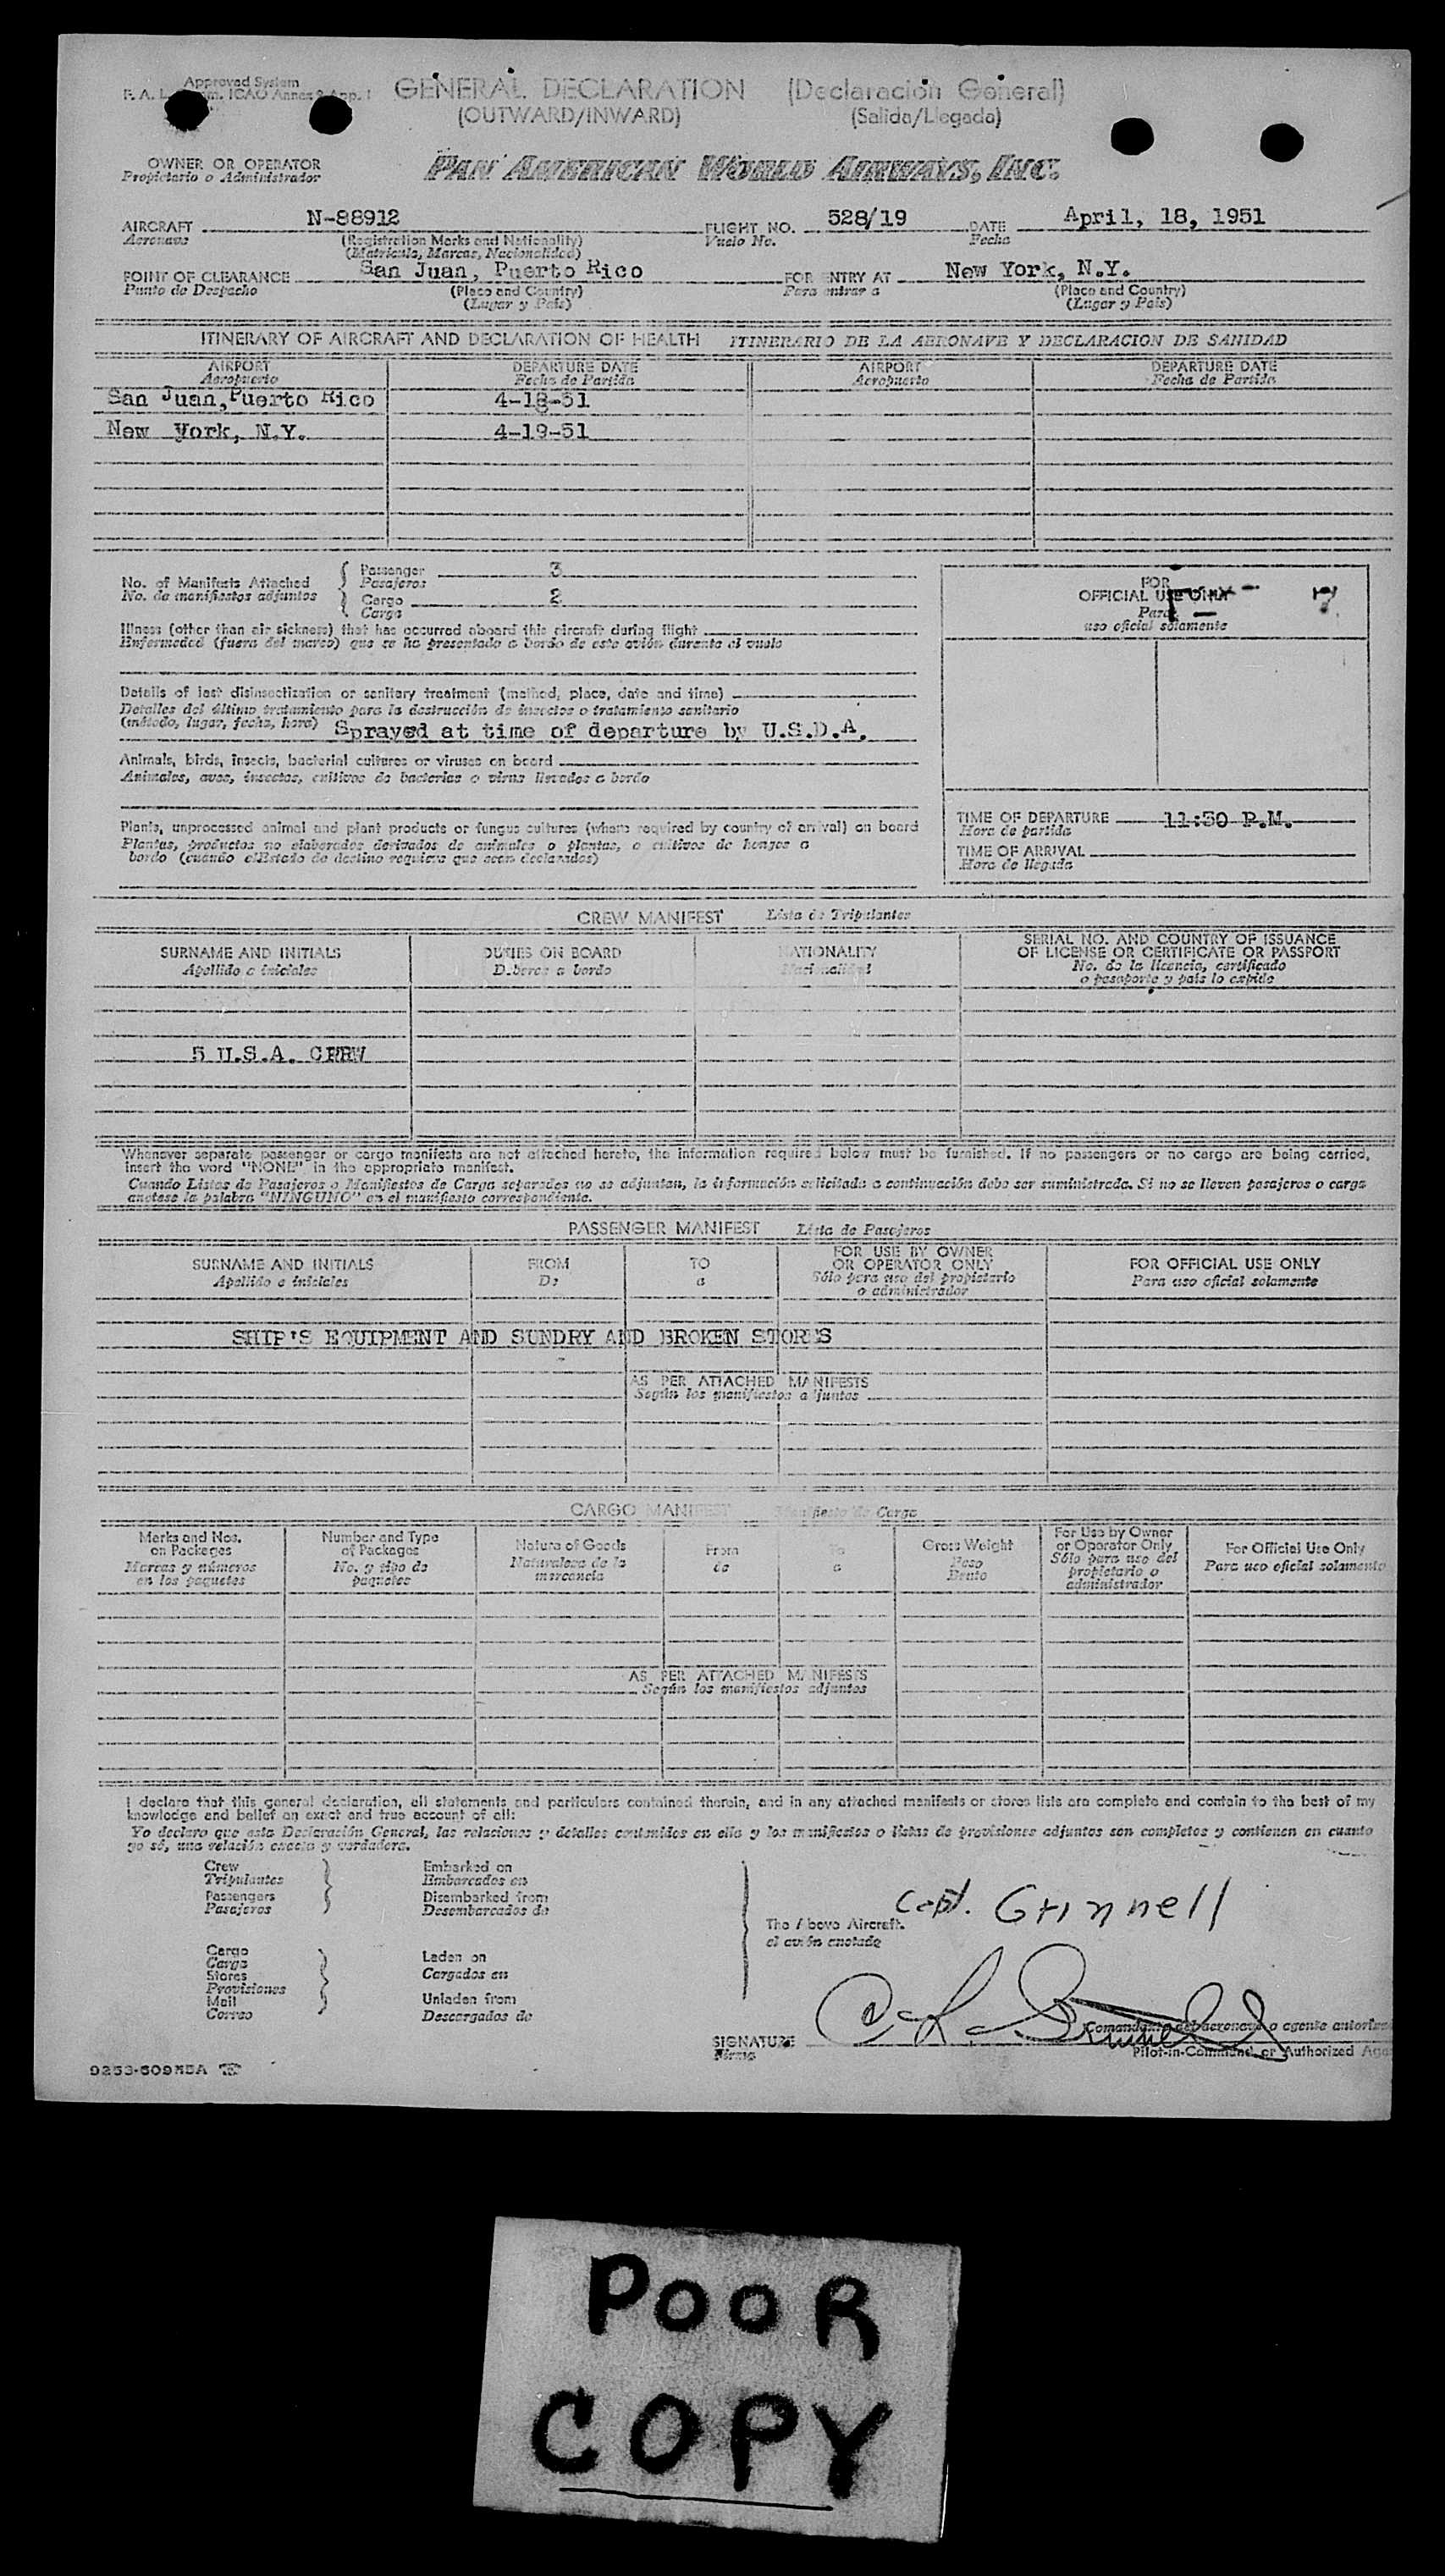 Approved System
GENERAL DECLARATION (Declaración General)
(OUTWARD/INWARD) (Salida/Llegada)
OWNER OR OPERATOR
Propietario o Administrador
PAN AMERICAN WORLD AIRWAYS, INC.
AIRCRAFT N-88912 FLIGHT NO. 528/19 DATE April, 18, 1951
Aeronave (Registration Marks and Nationality) Vuelo No. Fecha
(Matrícula, Marcas, Nacionalidad)
POINT OF CLEARANCE San Juan, Puerto Rico FOR ENTRY AT New York, N.Y.
Punto de Despacho (Place and Country) Para entrar a (Place and Country)
(Lugar y País) (Lugar y País)
ITINERARY OF AIRCRAFT AND DECLARATION OF HEALTH ITINERARIO DE LA AERONAVE Y DECLARACION DE SANIDAD
AIRPORT DEPARTURE DATE AIRPORT DEPARTURE DATE
Aeropuerto Fecha de Partida Aeropuerto Fecha de Partida
San Juan, Puerto Rico 4-18-51
New York, N.Y. 4-19-51
No. of Manifests Attached
No. de manifiestos adjuntos
Passenger 3
Pasajeros
Cargo 2
Carga
Illness (other than air sickness) that has occurred aboard this aircraft during flight
Enfermedad (fuera del mareo) que se ha presentado a bordo de este avión durante el vuelo
Details of last disinsectization or sanitary treatment (method, place, date and time)
Detalles del último tratamiento para la destrucción de insectos o tratamiento sanitario
(método, lugar, fecha, hora) Sprayed at time of departure by U.S.D.A.
Animals, birds, insects, bacterial cultures or viruses on board
Animales, aves, insectos, cultivos de bacterias o virus llevados a bordo
Plants, unprocessed animal and plant products or fungus cultures (where required by country of arrival) on board
Plantas, productos no elaborados derivados de animales o plantas, o cultivos de hongos a
bordo (cuando el Estado de destino requiere que sean declarados)
FOR
OFFICIAL USE ONLY
Para
uso oficial solamente
TIME OF DEPARTURE 11:50 P.M.
Hora de partida
TIME OF ARRIVAL
Hora de llegada
CREW MANIFEST Lista de Tripulantes
SURNAME AND INITIALS DUTIES ON BOARD NATIONALITY SERIAL NO. AND COUNTRY OF ISSUANCE
OF LICENSE OR CERTIFICATE OR PASSPORT
Apellido e iniciales Deberes a bordo Nacionalidad No. de la licencia, certificado
o pasaporte y país lo expide
5 U.S.A. CREW
Whenever separate passenger or cargo manifests are not attached hereto, the information required below must be furnished. If no passengers or no cargo are being carried,
insert the word "NONE" in the appropriate manifest.
Cuando Listas de Pasajeros o Manifiestos de Carga separados no se adjuntan, la información solicitada a continuación debe ser suministrada. Si no se lleven pasajeros o carga
anótese la palabra "NINGUNO" en el manifiesto correspondiente.
PASSENGER MANIFEST Lista de Pasajeros
SURNAME AND INITIALS FROM TO FOR USE BY OWNER
OR OPERATOR ONLY FOR OFFICIAL USE ONLY
Apellido e iniciales De a Sólo para uso del propietario
o administrador Para uso oficial solamente
SHIP'S EQUIPMENT AND SUNDRY AND BROKEN STORES
AS PER ATTACHED MANIFESTS
Según los manifiestos adjuntos
CARGO MANIFEST Manifiesto de Carga
Marks and Nos.
on Packages
Marcas y números
en los paquetes
Number and Type
of Packages
No. y tipo de
paquetes
Nature of Goods
Naturaleza de la
mercancía
From
de
To
a
Gross Weight
Peso
Bruto
For Use by Owner
or Operator Only
Sólo para uso del
propietario o
administrador
For Official Use Only
Para uso oficial solamente
AS PER ATTACHED MANIFESTS
Según los manifiestos adjuntos
I declare that this general declaration, all statements and particulars contained therein, and in any attached manifests or stores lists are complete and contain to the best of my
knowledge and belief an exact and true account of all:
Yo declaro que esta Declaración General, las relaciones y detalles contenidos en ella y los manifiestos o listas de provisiones adjuntos son completos y contienen en cuanto
yo sé, una relación exacta y verdadera.
Crew
Tripulantes
Passengers
Pasajeros
Embarked on
Embarcados en
Disembarked from
Desembarcados de
Cargo
Carga
Stores
Provisiones
Mail
Correo
Laden on
Cargados en
Unladen from
Descargados de
The Above Aircraft.
el avión anotado
Capt. Grinnell
SIGNATURE
Firma
Comandante del aeronave o agente
Pilot-in-Command or Authorized
POOR
COPY